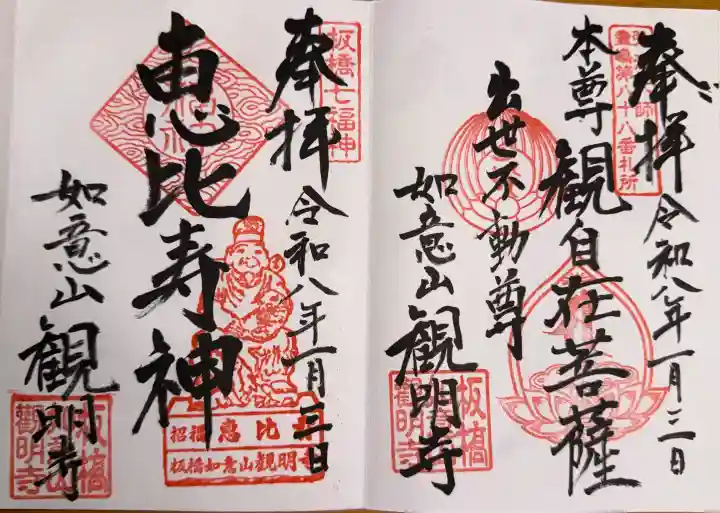 奉拝
令和八年一月三日
本尊
観自在菩薩
出世不動尊
如意山
観明寺
第八十八番札所
板橋
観明寺
奉拝
令和八年一月三日
恵比寿神
如意山
観明寺
板橋七福神
招福 恵比寿
板橋如意山観明寺
板橋
観明寺